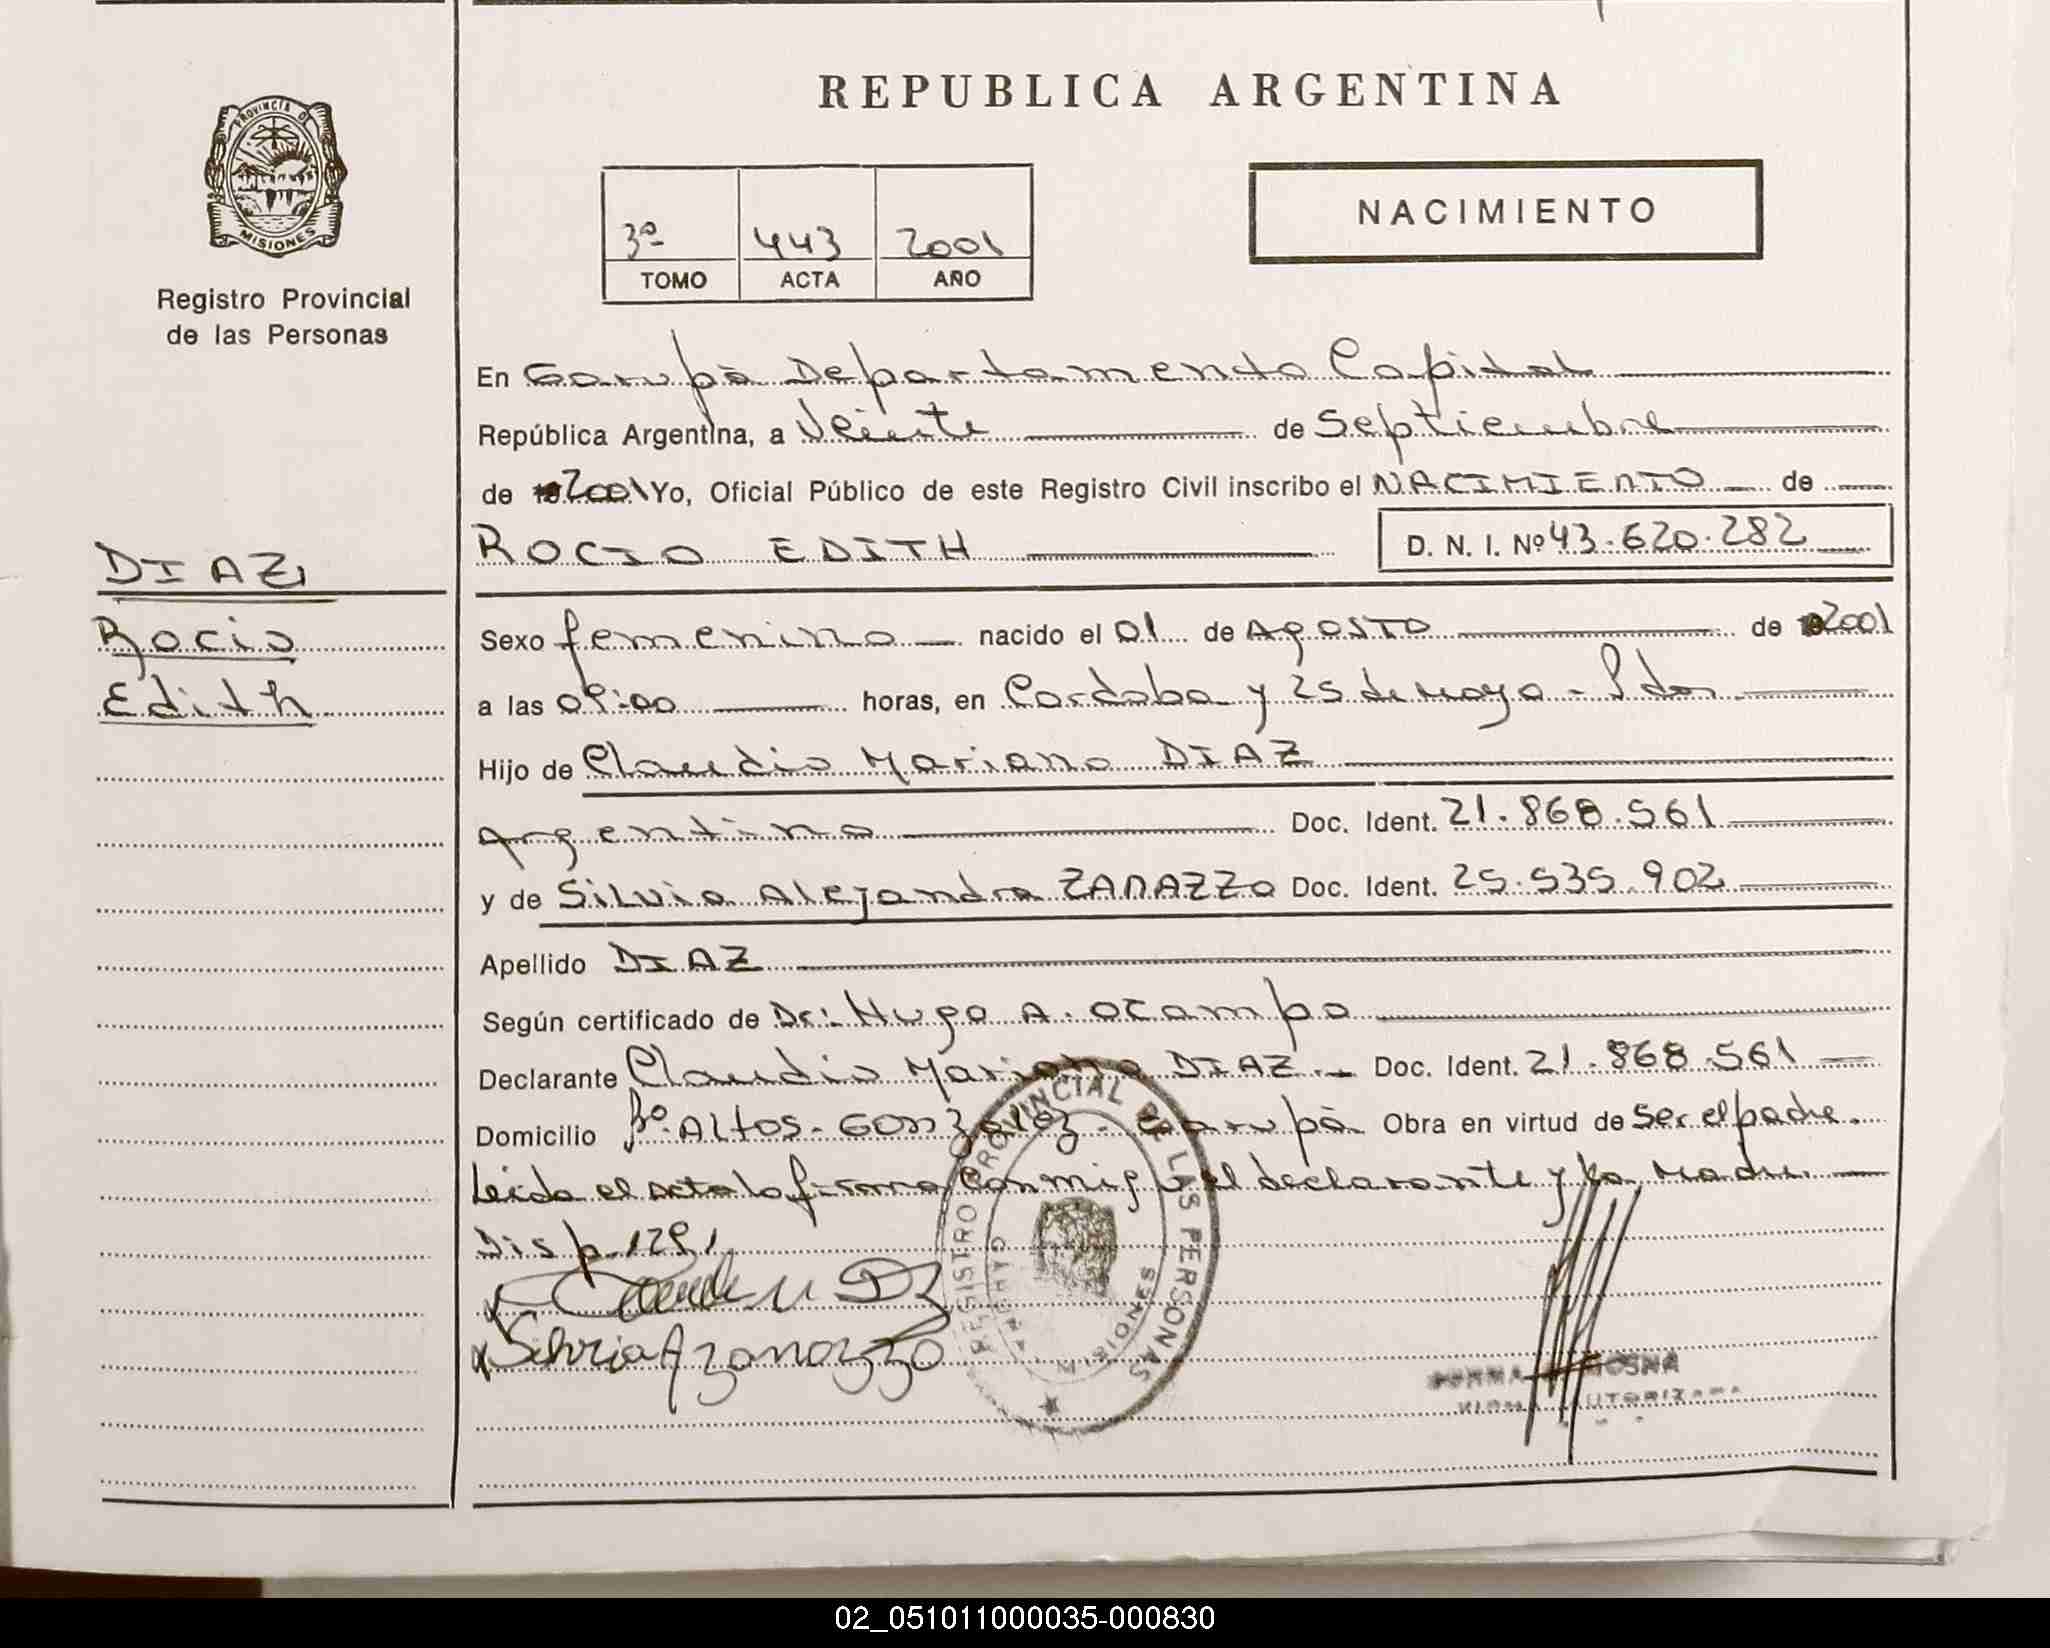 REPUBLICA ARGENTINA
PROVINCIA DE
MISIONES
Registro Provincial
de las Personas
3º 443 2001
TOMO ACTA AÑO
NACIMIENTO
En Garupá Departamento Capital
República Argentina, a Veinte de Septiembre
de 2001 Yo, Oficial Público de este Registro Civil inscribo el NACIMIENTO de
ROCIO EDITH D. N. I. Nº 43.620.282
DIAZ
Rocio
Edith
Sexo femenino nacido el 01 de AGOSTO de 2001
a las 09:00 horas, en Cordoba y 25 de Mayo - Pdas
Hijo de Claudio Mariano DIAZ
Argentino Doc. Ident. 21.868.561
y de Silvia Alejandra ZANAZZO Doc. Ident. 25.535.902
Apellido DIAZ
Según certificado de Dr: Hugo A. Ocampo
Declarante Claudio Mariano DIAZ.- Doc. Ident. 21.868.561
Domicilio Bº. ALtos - Gonzalez - Garupá Obra en virtud de ser el padre.
Leida el acta la firma conmigo el declarante y la Madre.
Disp. 1291
Silvia A Zanazzo
REGISTRO PROVINCIAL DE LAS PERSONAS
MISIONES
02_051011000035-000830